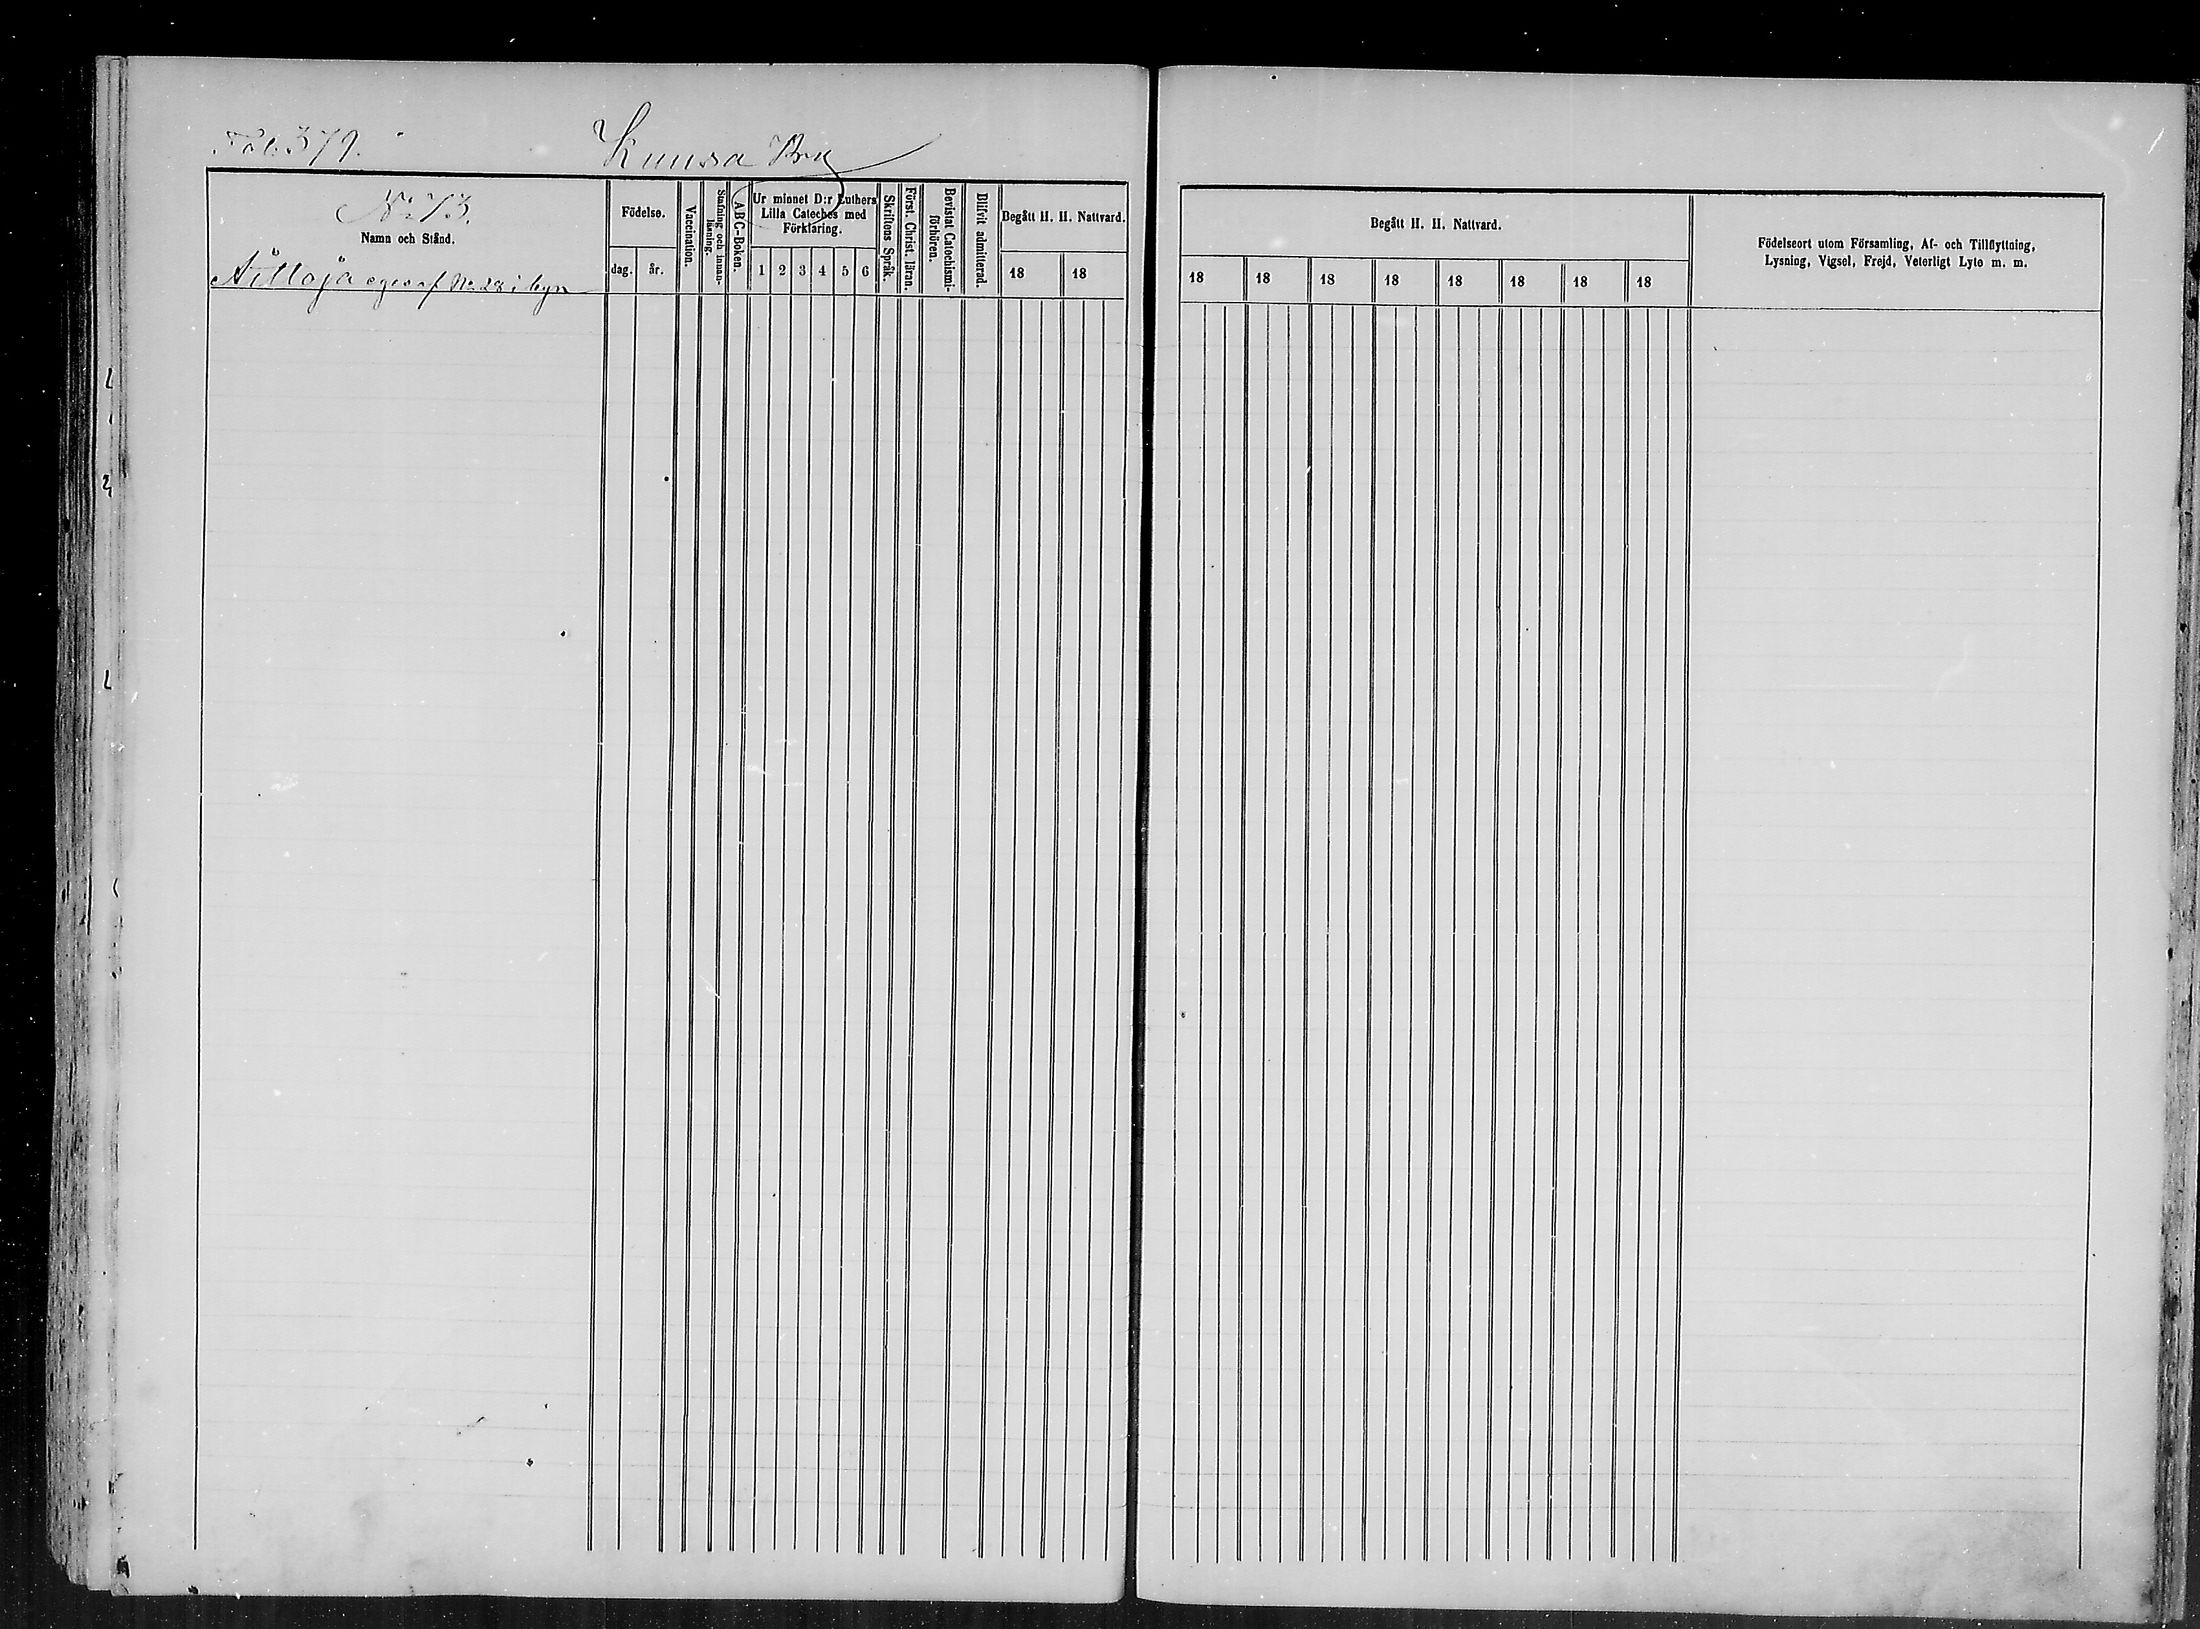 Fol. 379.
Kuusa By
N:o 73.
Namn och Stånd.
Födelse.
dag. år.
Vaccination.
Stafning och innan-läsning.
ABC-Boken.
Ur minnet D:r Luthers
Lilla Cateches med
Förklaring.
1 2 3 4 5 6
Skriftens Språk.
Först. Christ. läran.
Bevistat Catechismi-förhören.
Blifvit admitterad.
Begått H. H. Nattvard.
18 18
Alloja eges af No 28 i byn
Begått H. H. Nattvard.
18 18 18 18 18 18 18 18
Födelseort utom Församling, Af- och Tillflyttning,
Lysning, Vigsel, Frejd, Veterligt Lyte m. m.